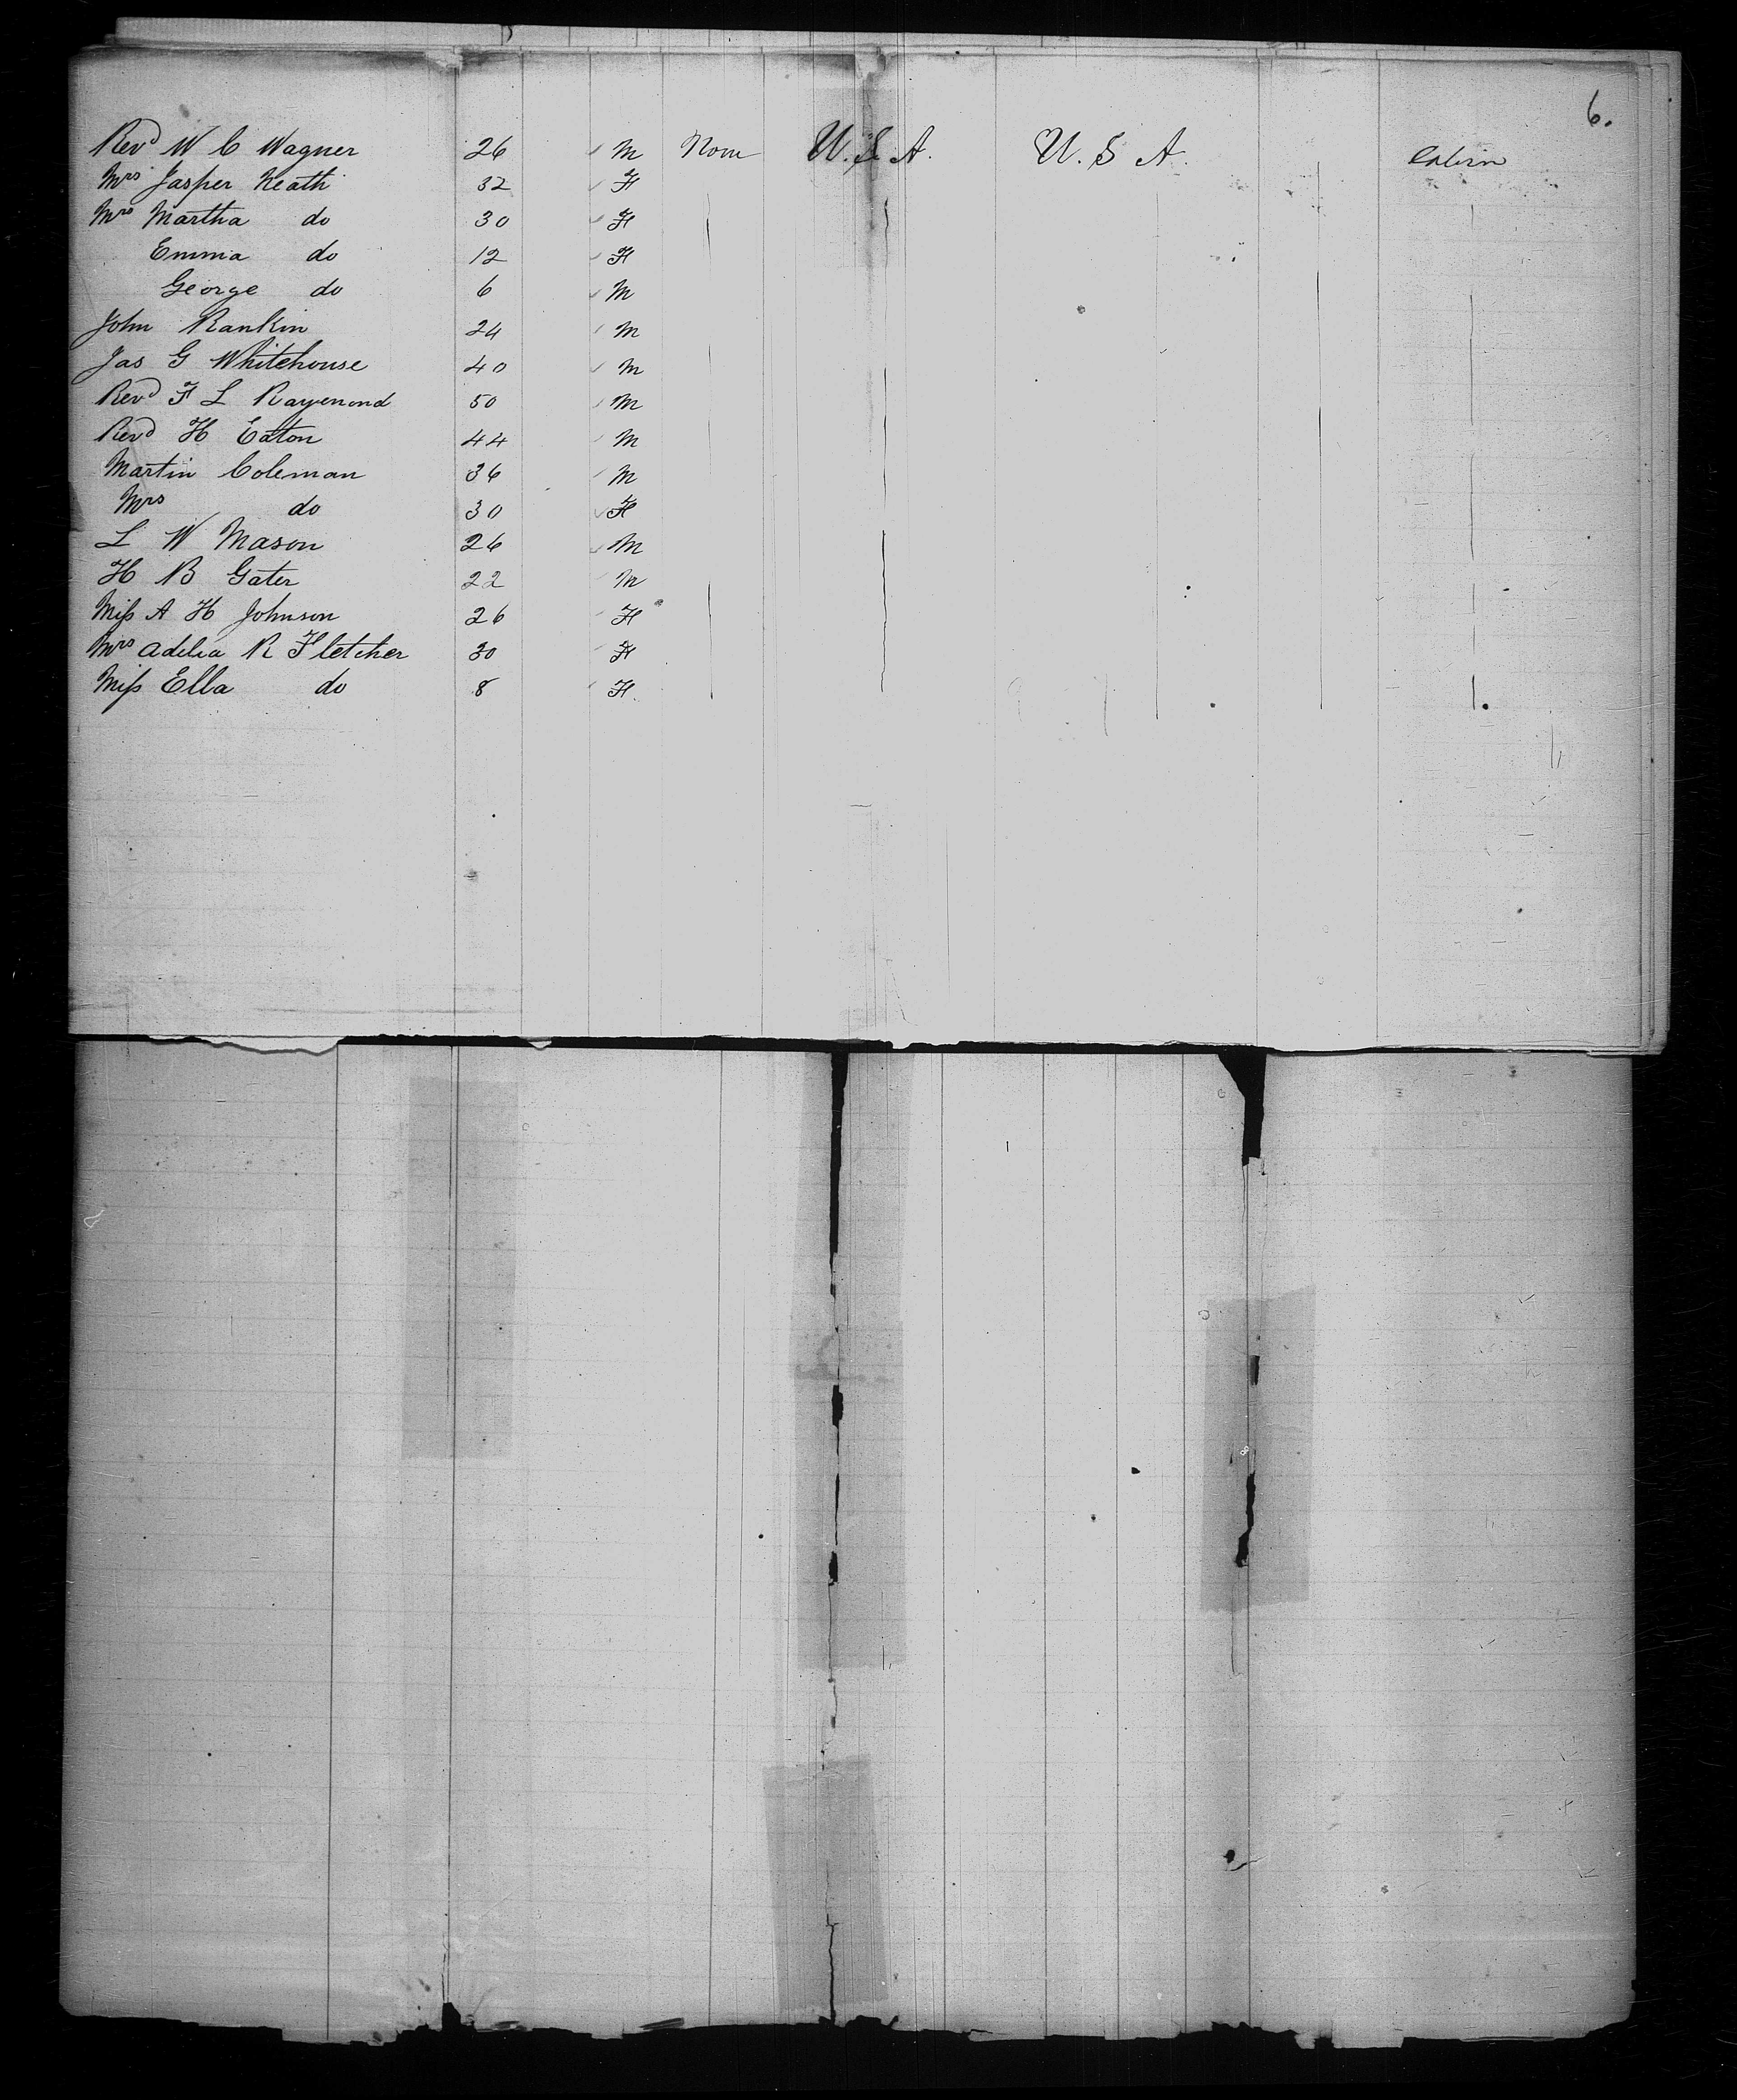 6.
Revd W C Wagner 26 M None U.S.A. U.S.A. Cabin
Mrs Jasper Heath 32 F
Mrs Martha do 30 F
Emma do 12 F
George do 6 M
John Rankin 24 M
Jas G Whitehouse 40 M
Revd F L Rayenond 50 M
Revd H Eaton 44 M
Martin Coleman 36 M
Mrs do 30 F
L W Mason 26 M
H B Gater 22 M
Miss A H Johnson 26 F
Mrs Adelia R Fletcher 30 F
Miss Ella do 8 F.